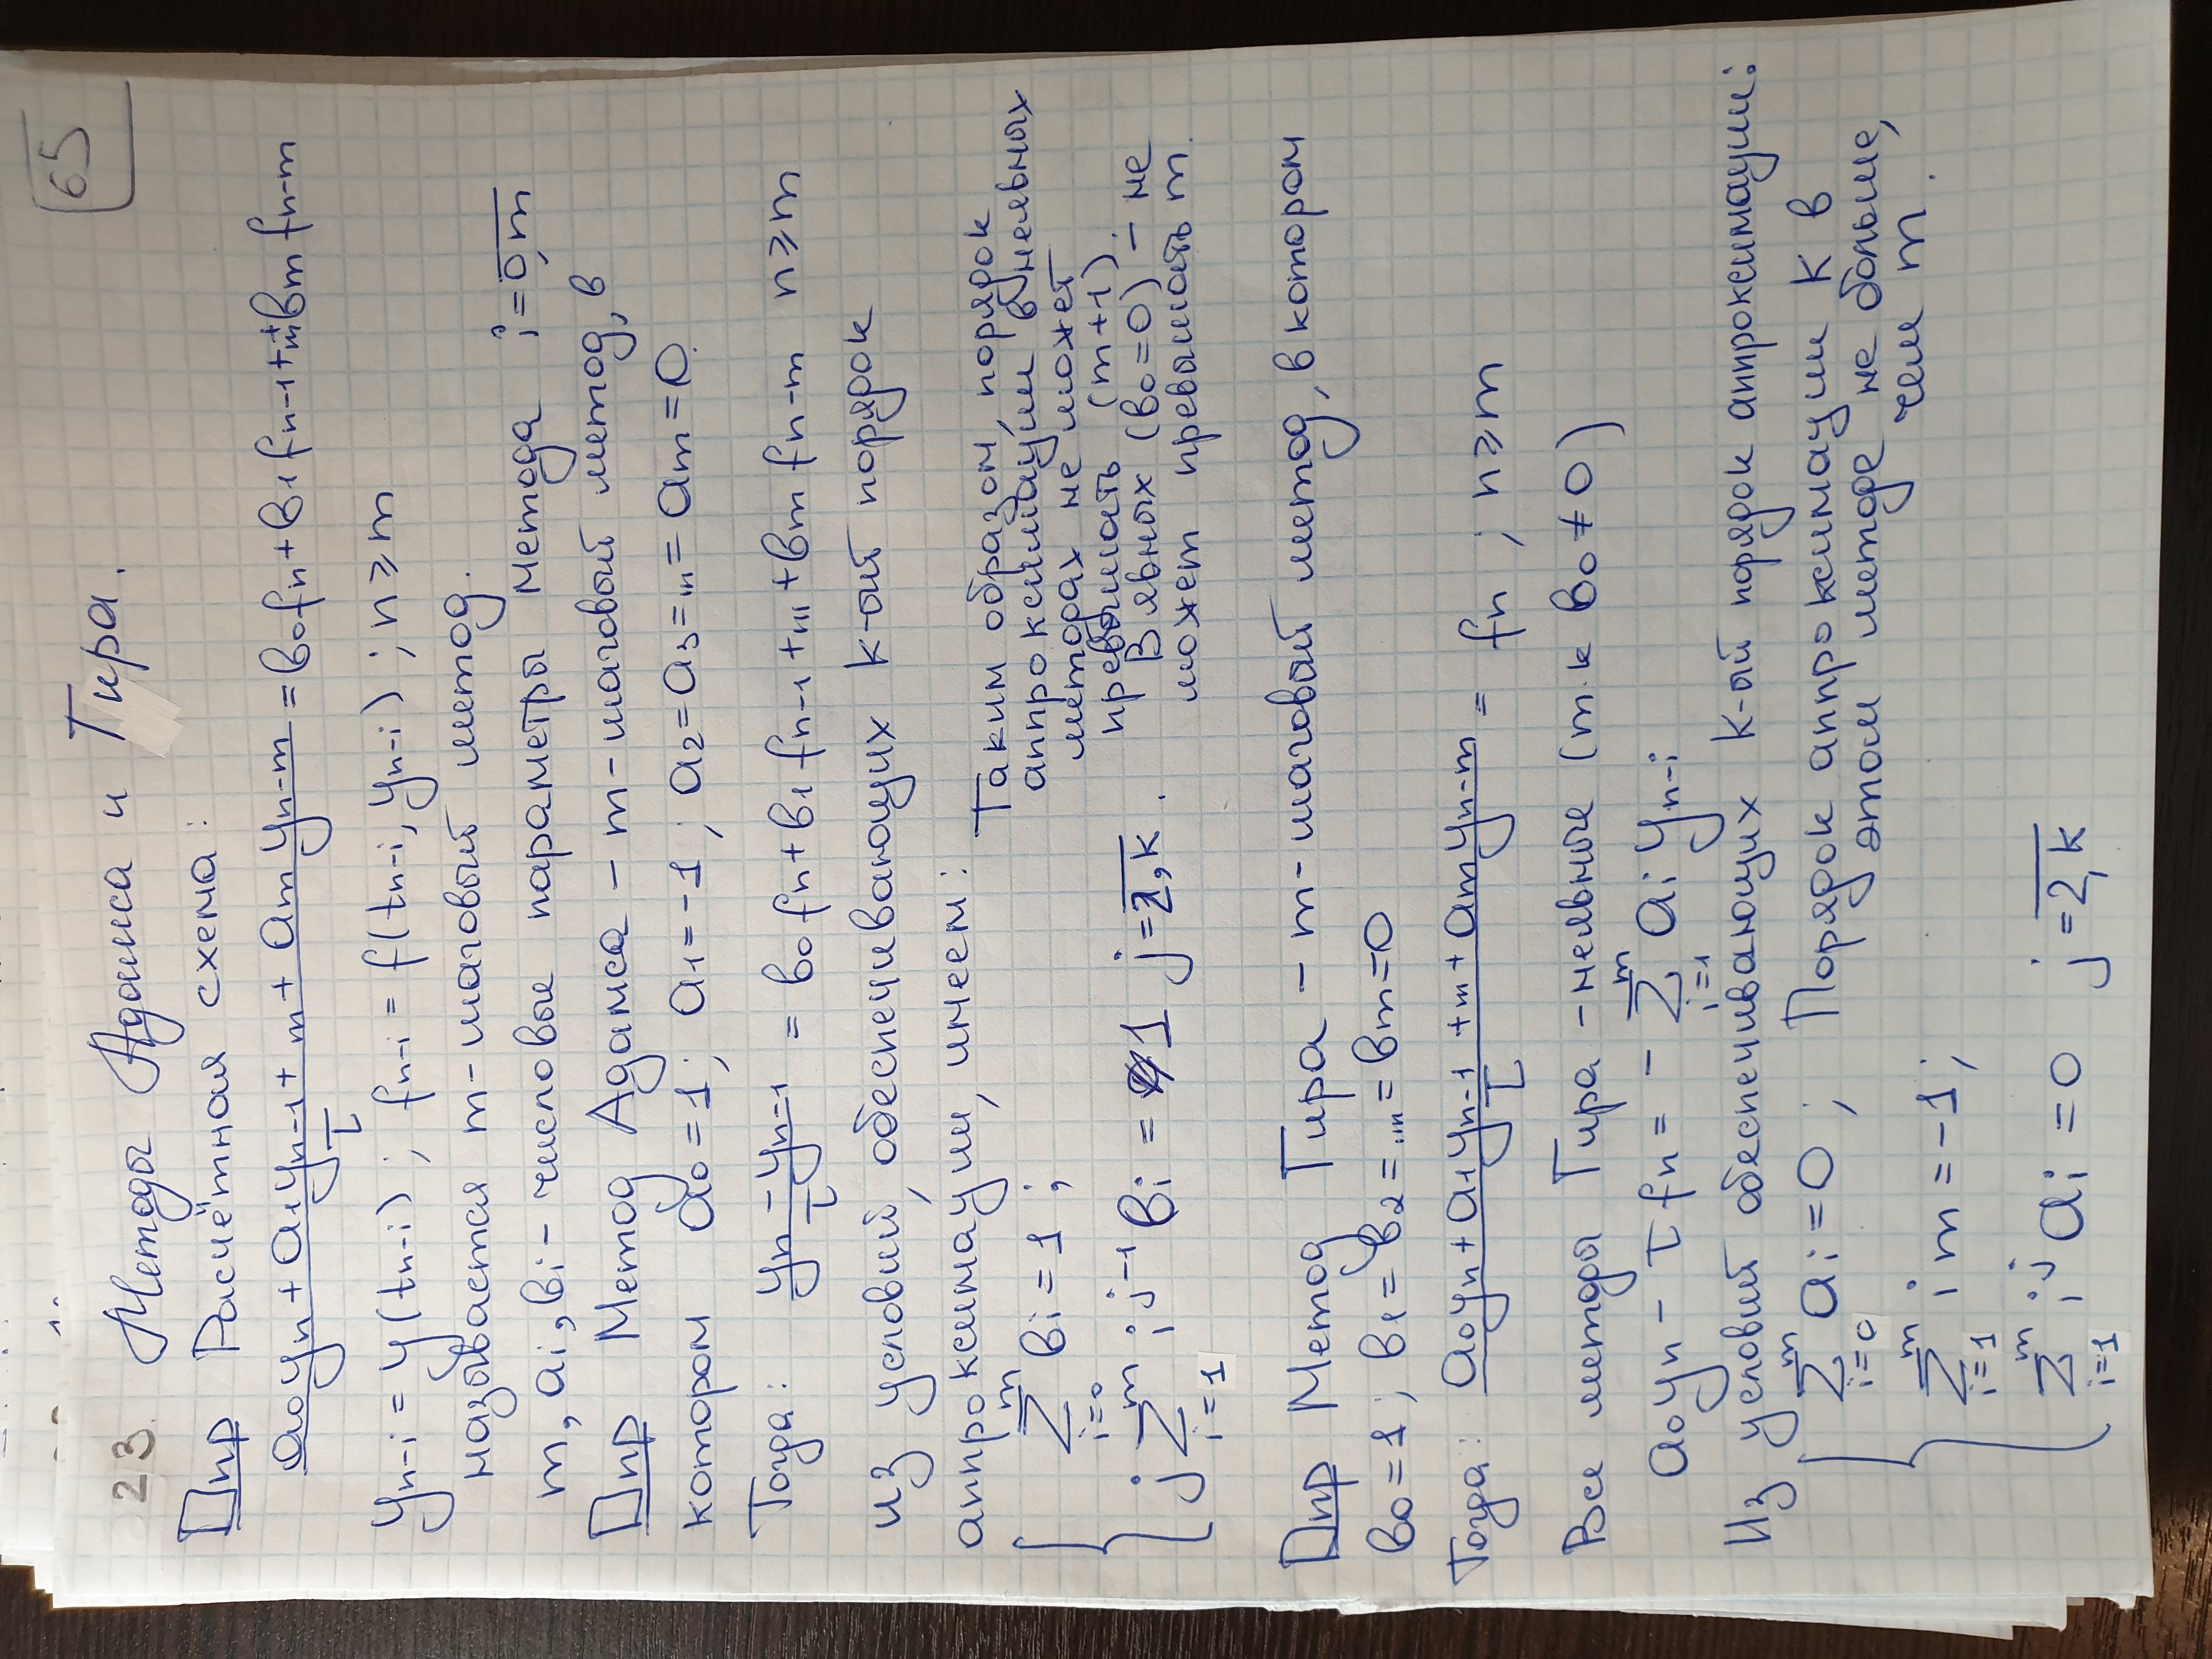 65
23. Методы Адамса и Гира.
Опр Расчётная схема:
(a₀yₙ + a₁yₙ₋₁ + ... + aₘyₙ₋ₘ)/τ = b₀fₙ + b₁fₙ₋₁ + ... + bₘfₙ₋ₘ
yₙ₋ᵢ = y(tₙ₋ᵢ); fₙ₋ᵢ = f(tₙ₋ᵢ, yₙ₋ᵢ); n ≥ m
называется m-шаговый метод.
m, aᵢ, bᵢ - числовые параметры метода i = 0,m
Опр Метод Адамса - m-шаговый метод, в
котором a₀ = 1; a₁ = -1; a₂ = a₃ = ... = aₘ = 0.
Тогда: (yₙ - yₙ₋₁)/τ = b₀fₙ + b₁fₙ₋₁ + ... + bₘfₙ₋ₘ n ≥ m
из условий, обеспечивающих k-ый порядок
аппроксимации, имеем:
{ Σᵢ₌₀ᵐ bᵢ = 1;
j Σᵢ₌₁ᵐ iʲ⁻¹ bᵢ = 1 j = 2,k.
Таким образом, порядок
аппроксимации в неявных
методах не может
превышать (m+1).
В явных (b₀ = 0) - не
может превышать m.
Опр Метод Гира - m-шаговый метод, в котором
b₀ = 1; b₁ = b₂ = ... = bₘ = 0
Тогда: (a₀yₙ + a₁yₙ₋₁ + ... + aₘyₙ₋ₘ)/τ = fₙ; n ≥ m
Все методы Гира - неявные (т.к b₀ ≠ 0)
a₀yₙ - τfₙ = - Σᵢ₌₁ᵐ aᵢyₙ₋ᵢ
Из условий обеспечивающих k-ый порядок аппроксимации:
{ Σᵢ₌₀ᵐ aᵢ = 0;
Σᵢ₌₁ᵐ i m = -1;
Σᵢ₌₁ᵐ iʲ aᵢ = 0 j = 2,k
Порядок аппроксимации k в
этом методе не больше,
чем m.